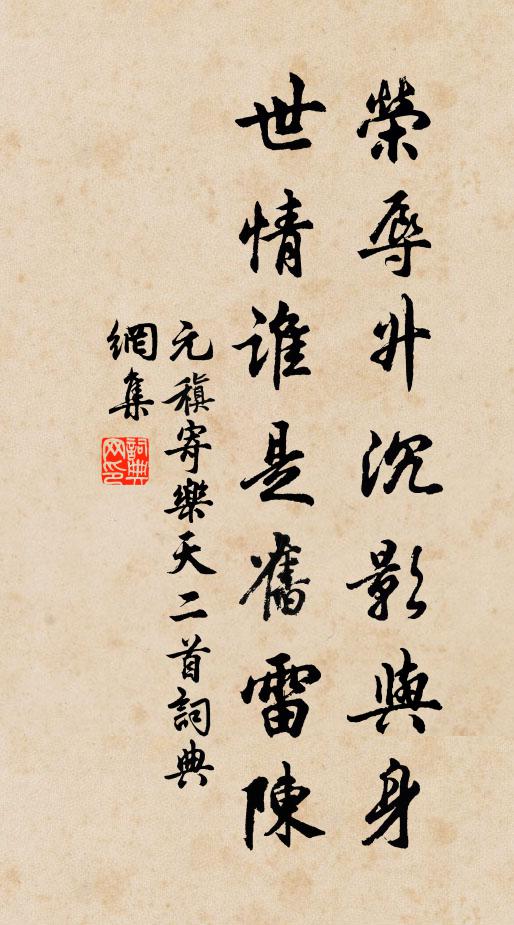 榮辱升沉影與身
世情誰是舊雷陳
元稹寄樂天二首詞典
網集
詞典
网印